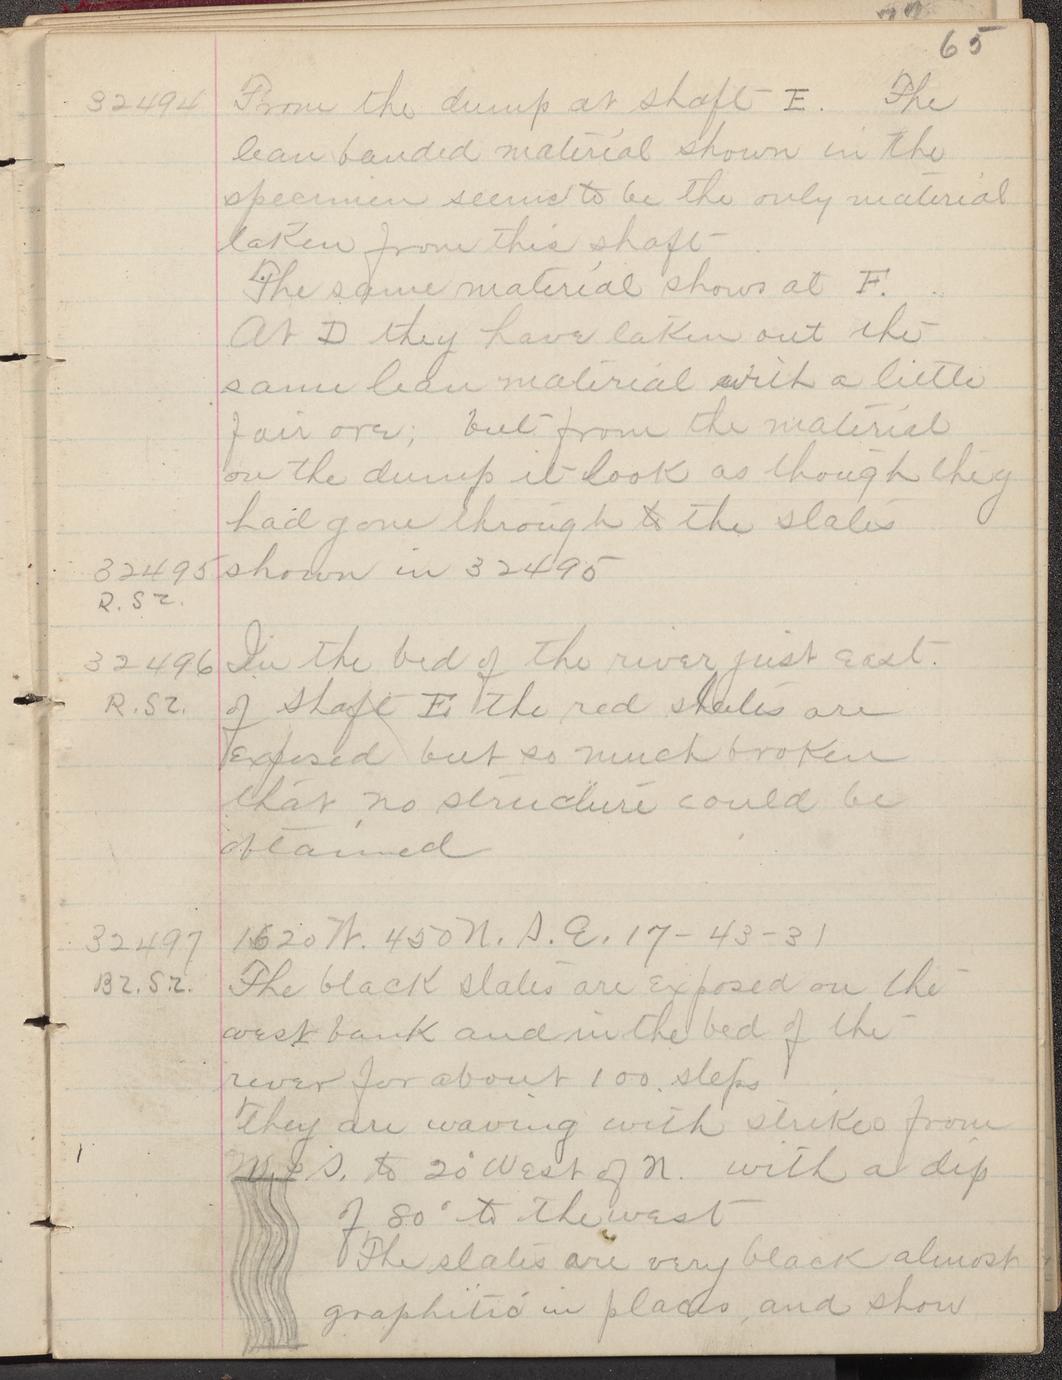 65
32494 From the dump at shaft E. The
lean banded material shown in the
specimen seems to be the only material
taken from this shaft
The same material shows at F.
At D they have taken out the
same lean material with a little
fair ore; but from the material
on the dump it look as though they
had gone through to the slates
32495 shown in 32495
R. Sl.
32496 In the bed of the river just east.
R. Sl. of shaft E, the red slates are
exposed but so much broken
that no structure could be
obtained
32497 1620 W. 450 N. S.E. 17-43-31
Bl. Sl. The black slates are exposed on the
west bank and in the bed of the
river for about 100 steps
They are waving with strikes from
N. & S. to 20° West of N. with a dip
of 80° to the west
The slates are very black almost
graphitic in places, and show